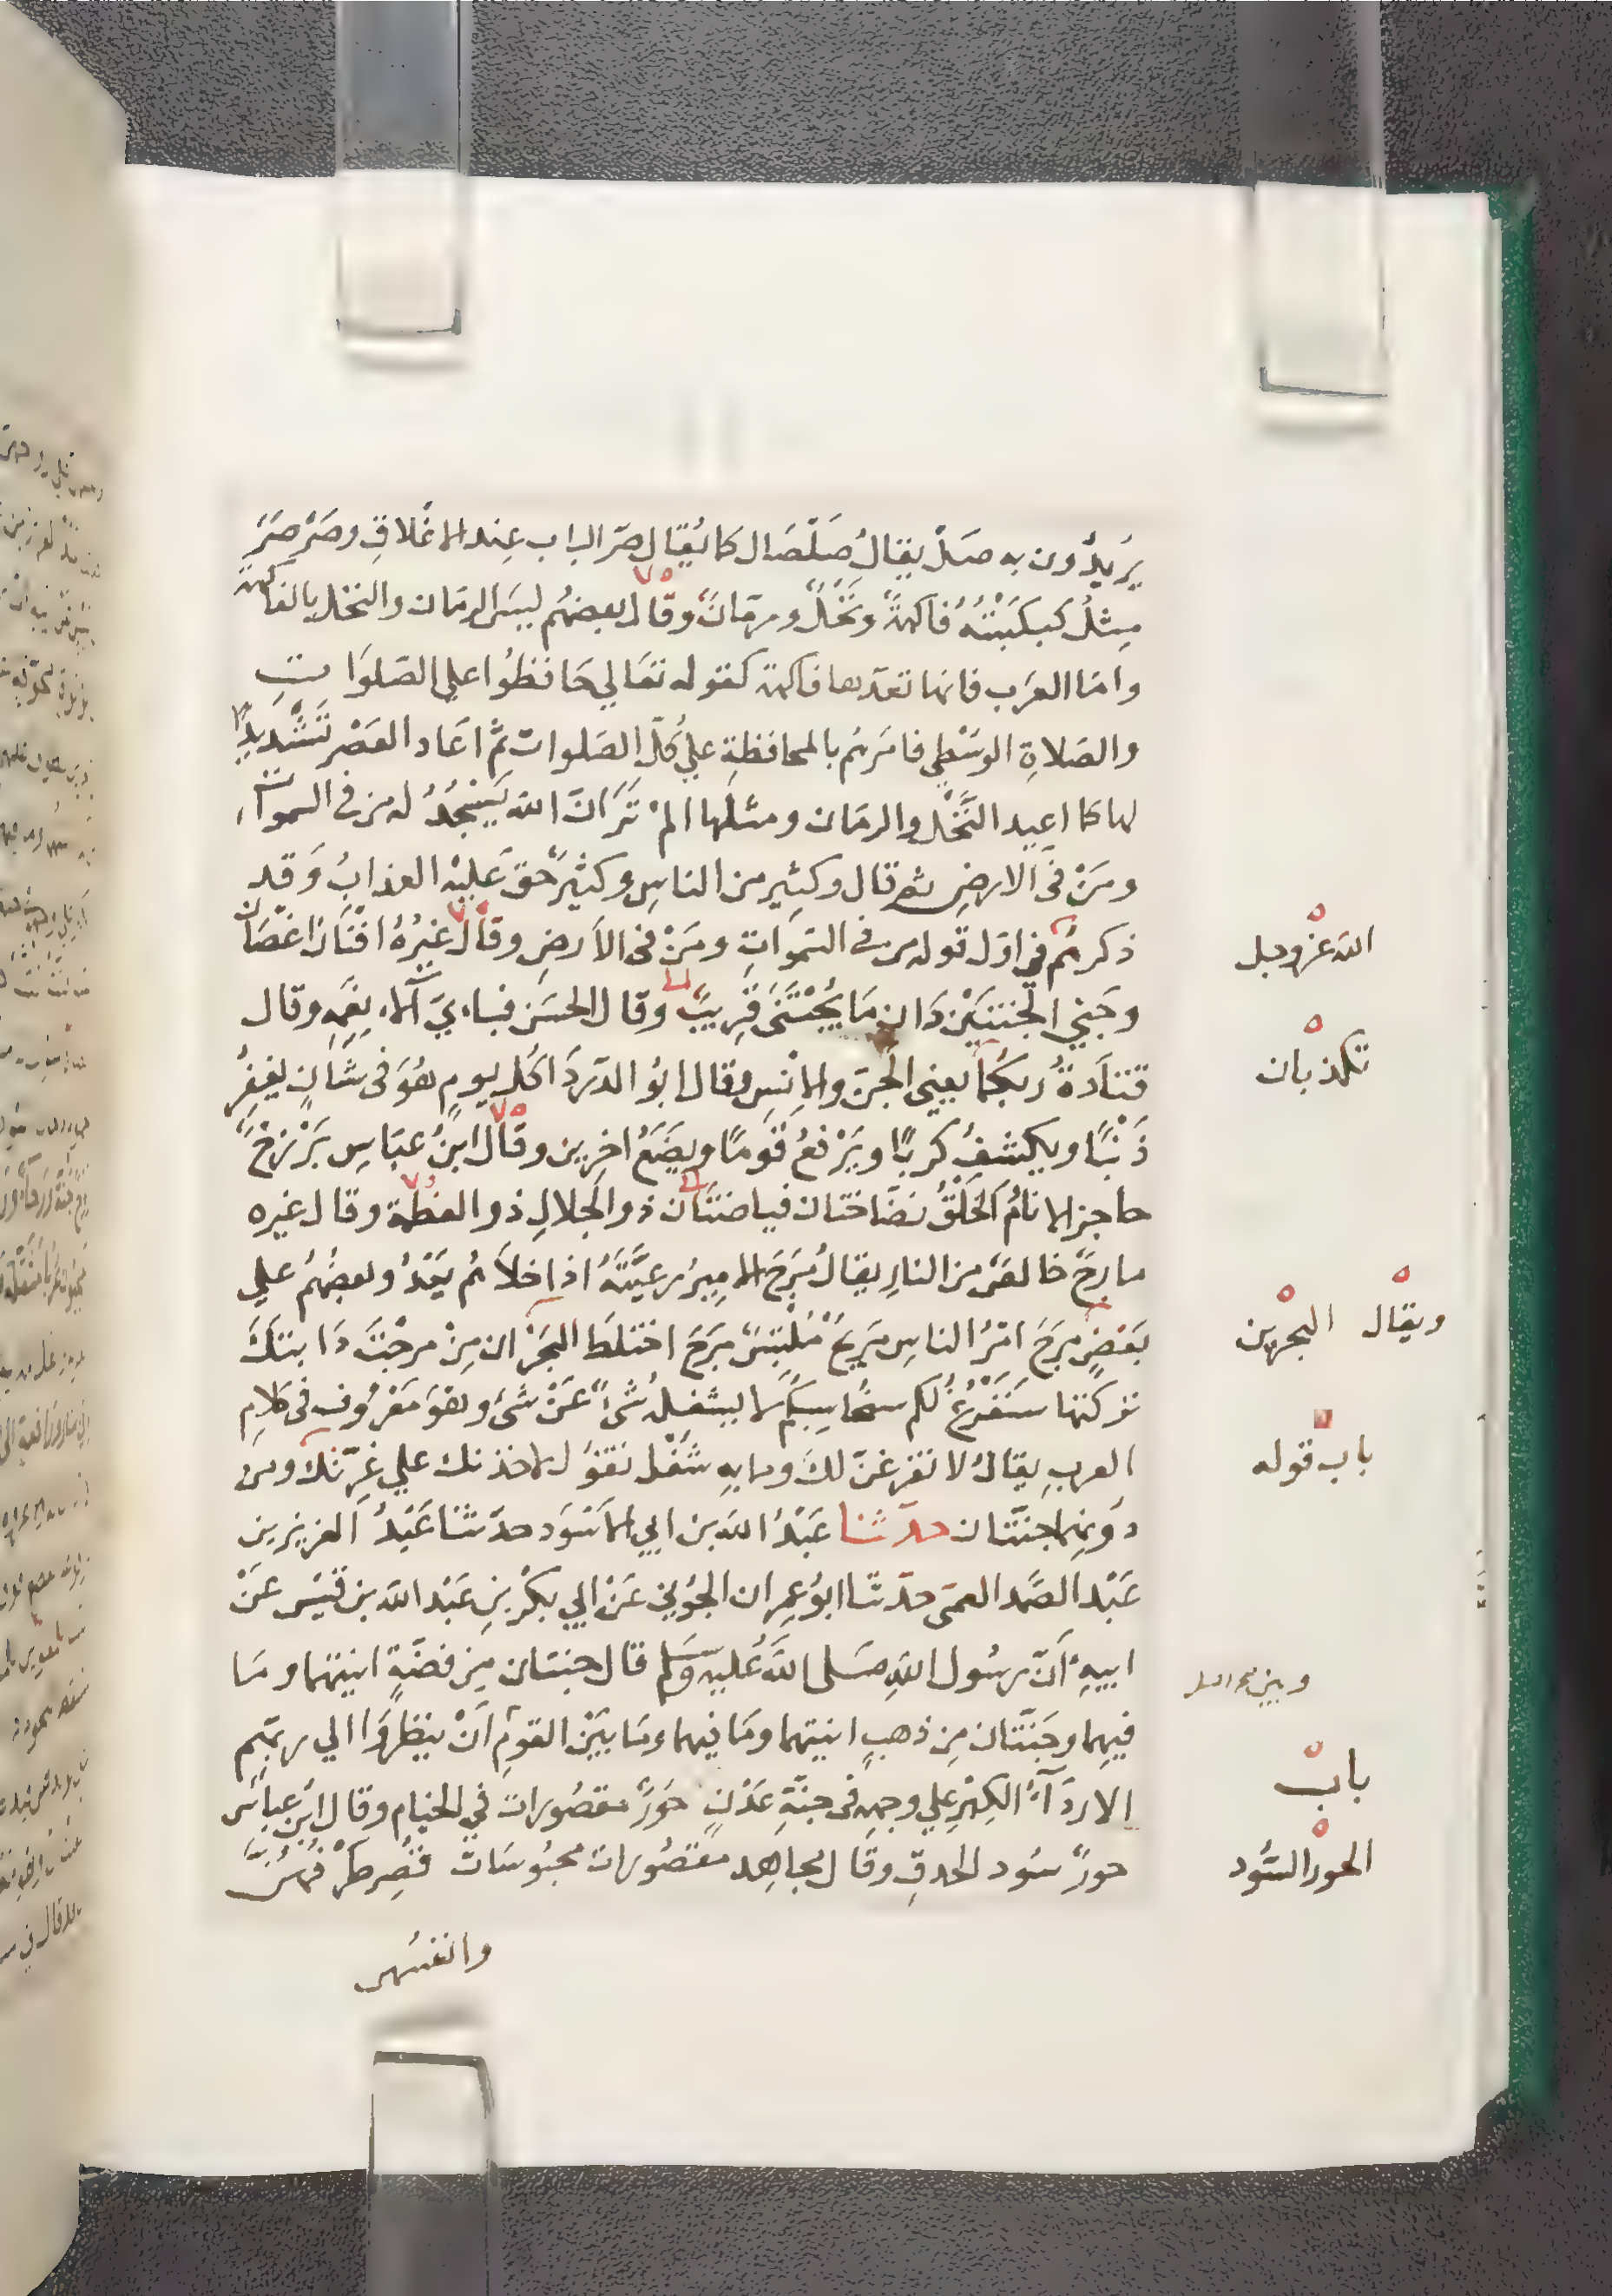 يريدون به صلّ يقالُ صَلْصَال كما يُقال صرّ الباب عِند الاغْلاقِ وصَرْصَرَ
مِثلُ كبكَبْتُهُ فاكهةٌ ونخْلٌ ورمّانٌ وقال بعضهُم ليسَ الرمّان والنخل بالفاكهة
وامّا العرَب فانها تعدّها فاكهة كقوله تعَالي حَافظُوا علي الصّلوَاتِ
والصّلاةِ الوسْطي فامَرهُم بالمحافظةِ علي كُلّ الصّلوات ثمّ اعَاد العَصْر تَشْديدًا
لها كما اعِيد النَّخْل والرمّان ومثلها المْ تَرَ انّ الله يَسْجُدُ له من في السموات
ومَنْ في الارضِ ثم قال وكثِير من الناسِ وكثيرٌ حَق عَليْه العذابُ وَقد
ذكرهُم في اوّل قوله من في السّمَواتِ ومَنْ في الأرضِ وقال غيرُهُ افْنَان اغْصَان
وجَني الجنتَيْن دَان مَا يُجْتَنَى قَرِيبٌ وقال الحسَن فباىّ آلاء نِعَمِه وقال
قتادَةُ ربكُما يعني الجنّ والانِسِ وقال ابُو الدّردَا كُل يوم هُوَ في شان يغفِرُ
ذَنْبًا ويكشفُ كربًا ويَرْفعُ قَومًا ويضَعُ اخرِين وقال ابنُ عبّاسِ بَرْزخٌ
حاجز الانامُ الخَلْقُ نضّاختان فياضتَان ذو الجلالِ ذو العظمة وقال غيره
مارجٌ خالصٌ من النارِ يقالُ مَرَجَ الامِيرُ رعيَّتَهُ اذا خلاّهُم يَعْدُو بعضُهُم علي
بَعْضٍ مرَجَ امْرُ الناسِ مَرِيجٌ مُلْتبِسٌ مَرَجَ اختلَطَ البحْرَان مِنْ مرجْتَ دَابتكَ
تركتها سَنَفْرُغُ لكم سنحَاسِبكُم لا يشغلهُ شىٌ عَنْ شَئ وهوَ مَعْرُوف في كلامِ
العربِ يقالُ لا تفرغنّ لكَ وما بهِ شغْل تقوُل لاخذنك علي غِرّتك ومن
دونِهما جنتّان حدّثنا عَبْدُ الله بن ابي الاسْوَد حدّثنا عَبْدُ العزيز بن
عَبْد الصَّمد العمّى حدّثنا ابوُ عِمران الجوُني عَنْ ابي بكْر بنِ عَبْد الله بن قَيْس عَنْ
ابيهِ انّ رسُول اللهِ صَلى اللهُ عَليْه وَسَلم قال جنتان مِن فضّةٍ انيتهما ومَا
فيهِما وجَنتّان مِن ذهبٍ انيتهما ومَا فيهما ومَا بيَنْ القومِ انْ ينظروُا الي ربّهم
الا ردَآءُ الكِبْرِ علي وجههِ في جنّةِ عَدْنٍ حورٌ مقصُورات في الخيام وقال ابن عباس
حورٌ سُود الحدقِ وقال مجاهِد مقصُورات محبُوسَات قصِر طرْفُهُنّ
وانفسُهن
الله عز وجل
تكذبان
ويقال البحرين
باب قوله
وبين
باب
الحور السُّود